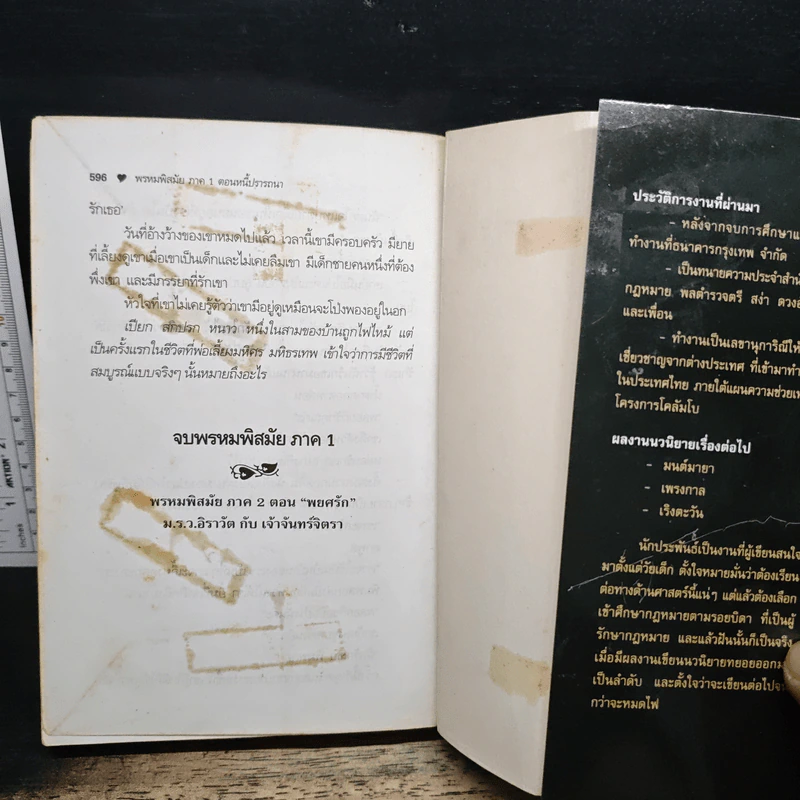 596 ♥ พรหมพิสมัย ภาค 1 ตอนหนี้ปรารถนา
รักเธอ'
วันที่อ้างว้างของเขาหมดไปแล้ว เวลานี้เขามีครอบครัว มียาย
ที่เลี้ยงดูเขาเมื่อเขาเป็นเด็กและไม่เคยลืมเขา มีเด็กชายคนหนึ่งที่ต้อง
พึ่งเขา และมีภรรยาที่รักเขา
หัวใจที่เขาไม่เคยรู้ตัวว่าเขามีอยู่ดูเหมือนจะโป่งพองอยู่ในอก
เปียก สกปรก หนาว หนึ่งในสามของบ้านถูกไฟไหม้ แต่
เป็นครั้งแรกในชีวิตที่พ่อเลี้ยงมหิศร มหิธรเทพ เข้าใจว่าการมีชีวิตที่
สมบูรณ์แบบจริงๆ นั้นหมายถึงอะไร
จบพรหมพิสมัย ภาค 1
พรหมพิสมัย ภาค 2 ตอน “พยศรัก”
ม.ร.ว.อิราวัต กับ เจ้าจันทร์จิตรา
ประวัติการงานที่ผ่านมา
- หลังจากจบการศึกษาแ
ทำงานที่ธนาคารกรุงเทพ จำกัด
- เป็นทนายความประจำสำน
กฎหมาย พลตำรวจตรี สง่า ดวงอ
และเพื่อน
- ทำงานเป็นเลขานุการิณีให้
เชี่ยวชาญจากต่างประเทศ ที่เข้ามาทำ
ในประเทศไทย ภายใต้แผนความช่วยเห
โครงการโคลัมโบ
ผลงานนวนิยายเรื่องต่อไป
- มนต์มายา
- เพรงกาล
- เริงตะวัน
นักประพันธ์เป็นงานที่ผู้เขียนสนใจ
มาตั้งแต่วัยเด็ก ตั้งใจหมายมั่นว่าต้องเรียน
ต่อทางด้านศาสตร์นี้แน่ๆ แต่แล้วต้องเลือก
เข้าศึกษากฎหมายตามรอยบิดา ที่เป็นผู้
รักษากฎหมาย และแล้วฝันนั้นก็เป็นจริง
เมื่อมีผลงานเขียนนวนิยายทยอยออกม
เป็นลำดับ และตั้งใจว่าจะเขียนต่อไปจ
กว่าจะหมดไฟ